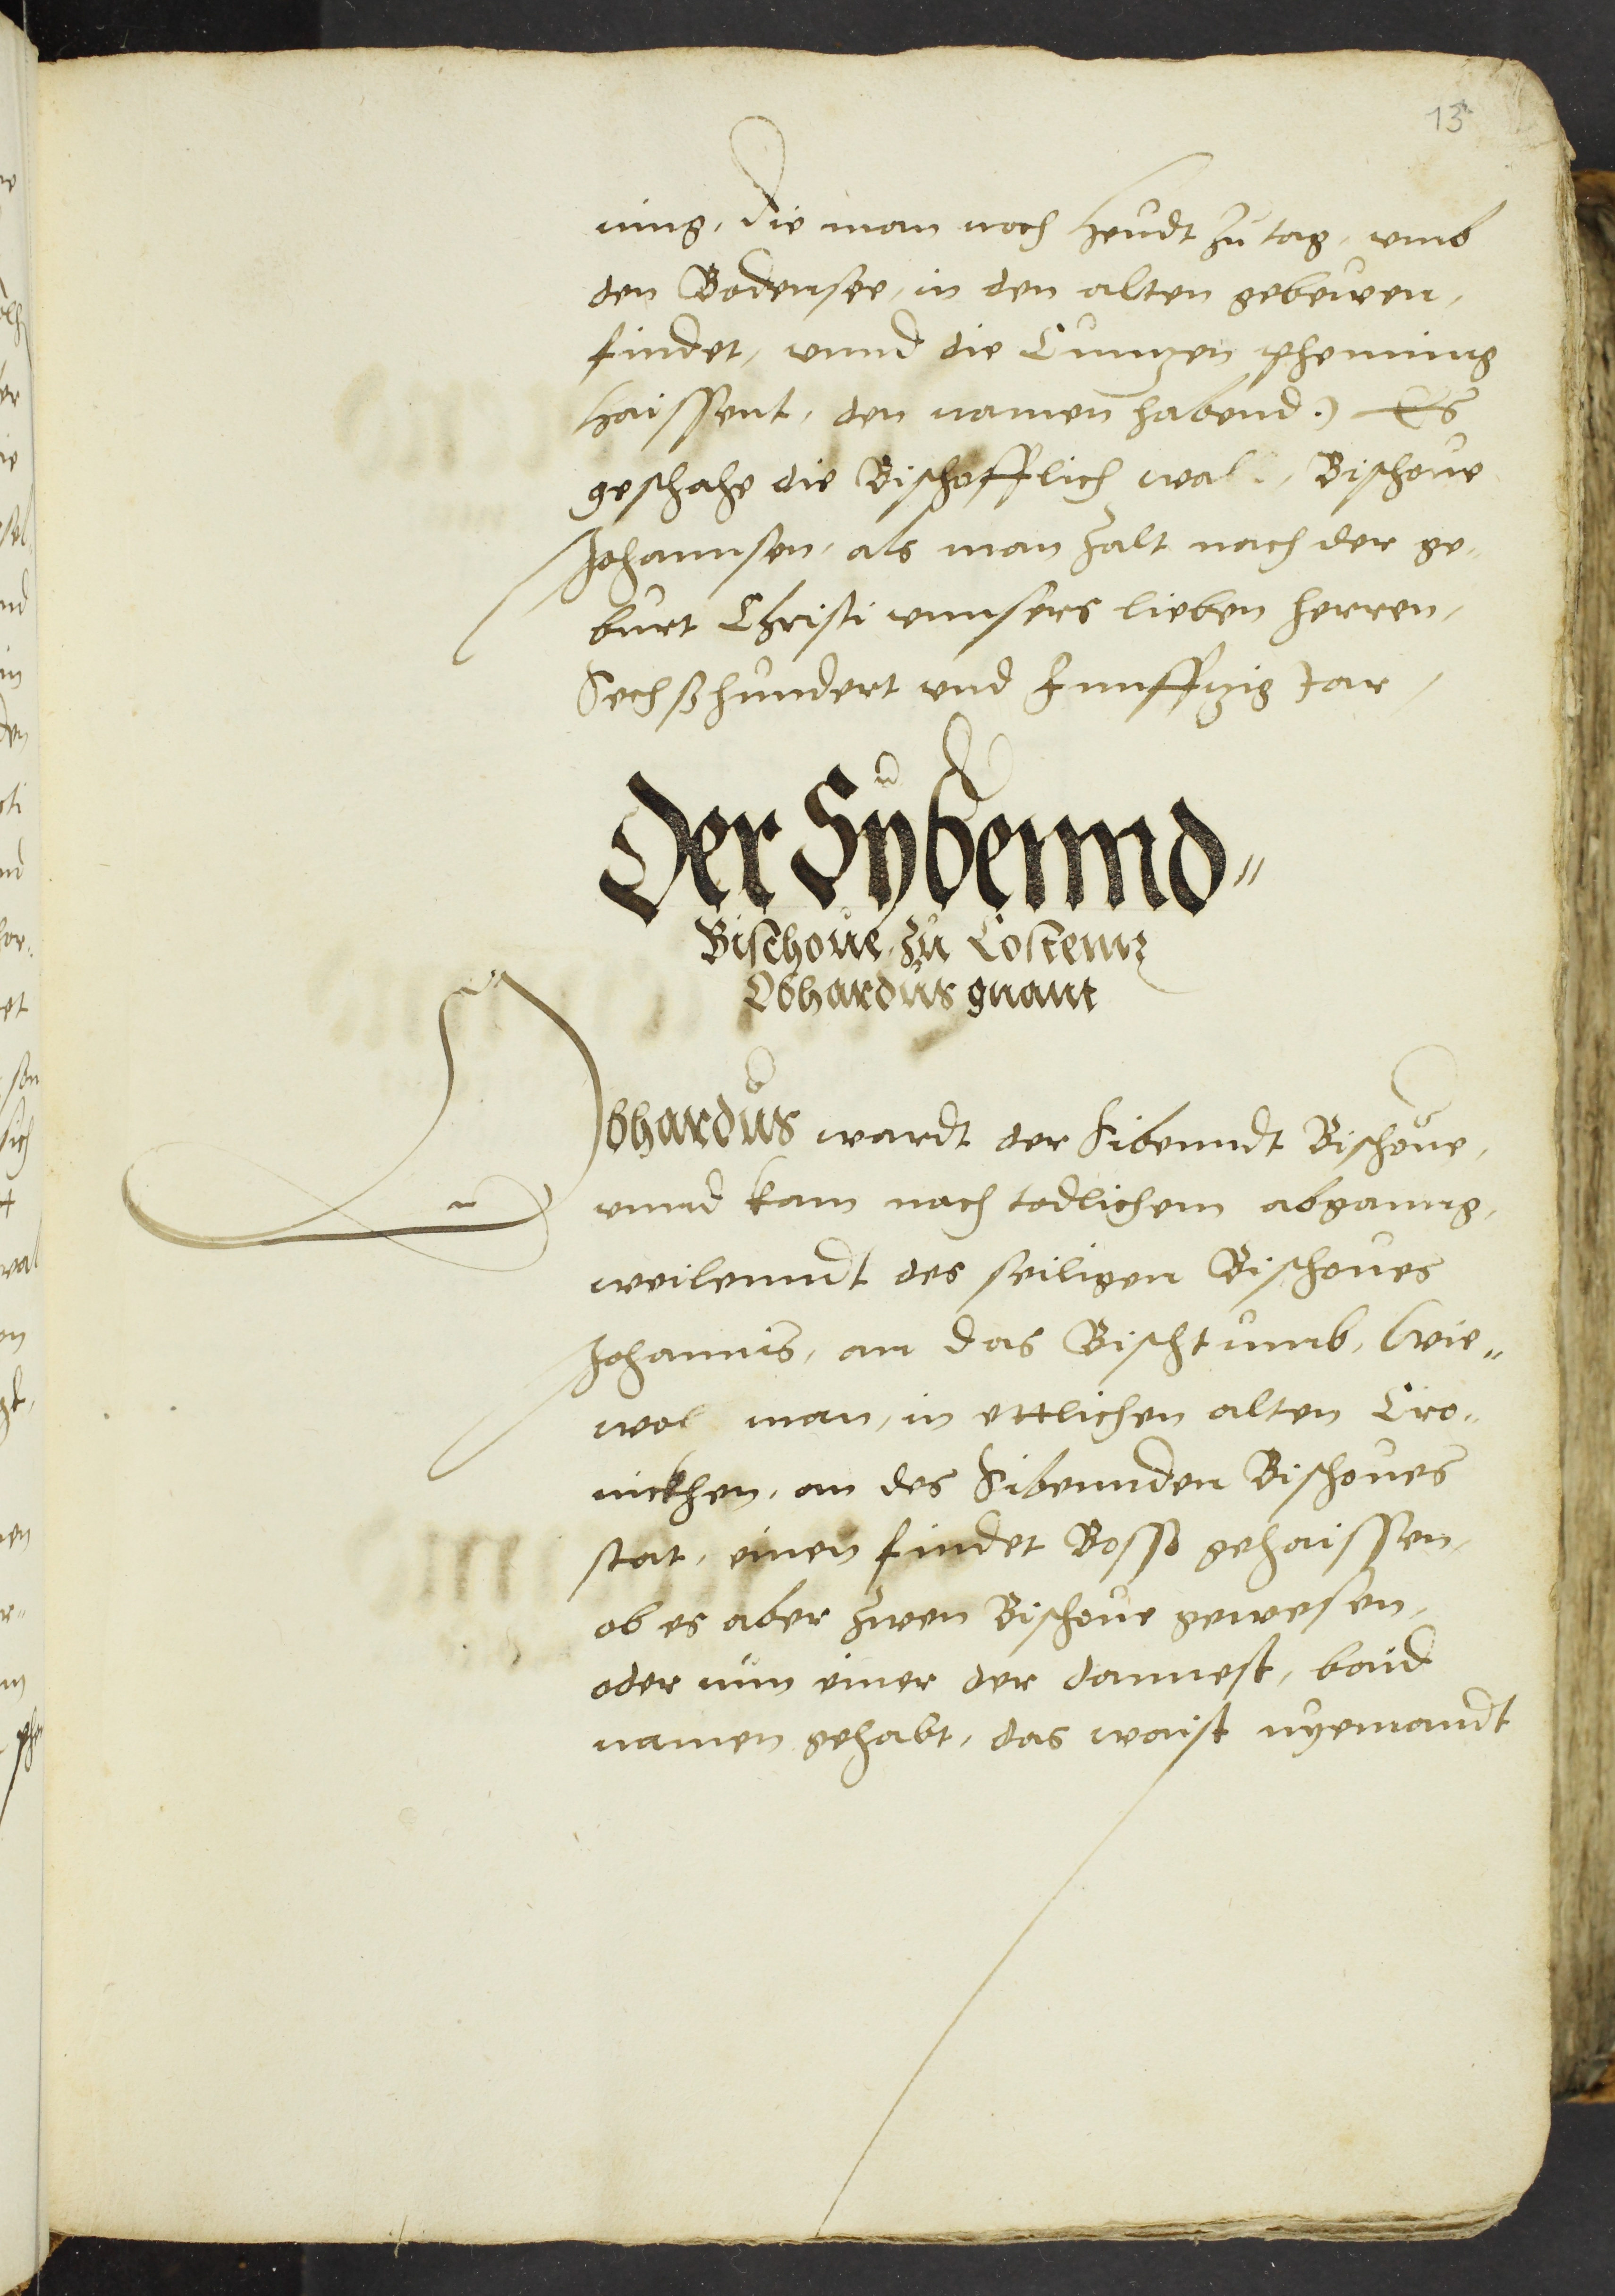 13
ning, die man noch heudt zu tag, umb
den Bodensee, in den alten gebewen,
findet, unnd die Cuntzen pfenning
haissent, den namen habend.) Es
geschahe die Bischofflich wal, Bischove
Johannsen, als man zalt nach der ge-
burt Christi unnsers lieben herren,
Sechßhundert und funfftzig Jar,
Der Sybennd=
Bischove, zu Costentz
Obhardus gnant
Obhardus wardt der Sibenndt Bischove,
unnd kam nach todlichem abganng,
weilenndt des seiligen Bischoves
Johannis, an das Bischtumb, (wie=
wol man, in ettlichen alten Cro-
nickhen, an des Sibennden Bischoves
stat, einen findet Bosso gehaissen,
ob es aber zwen Bischove gewesen,
oder nun einer der dannest, baid
namen gehabt, das waist nyemandt